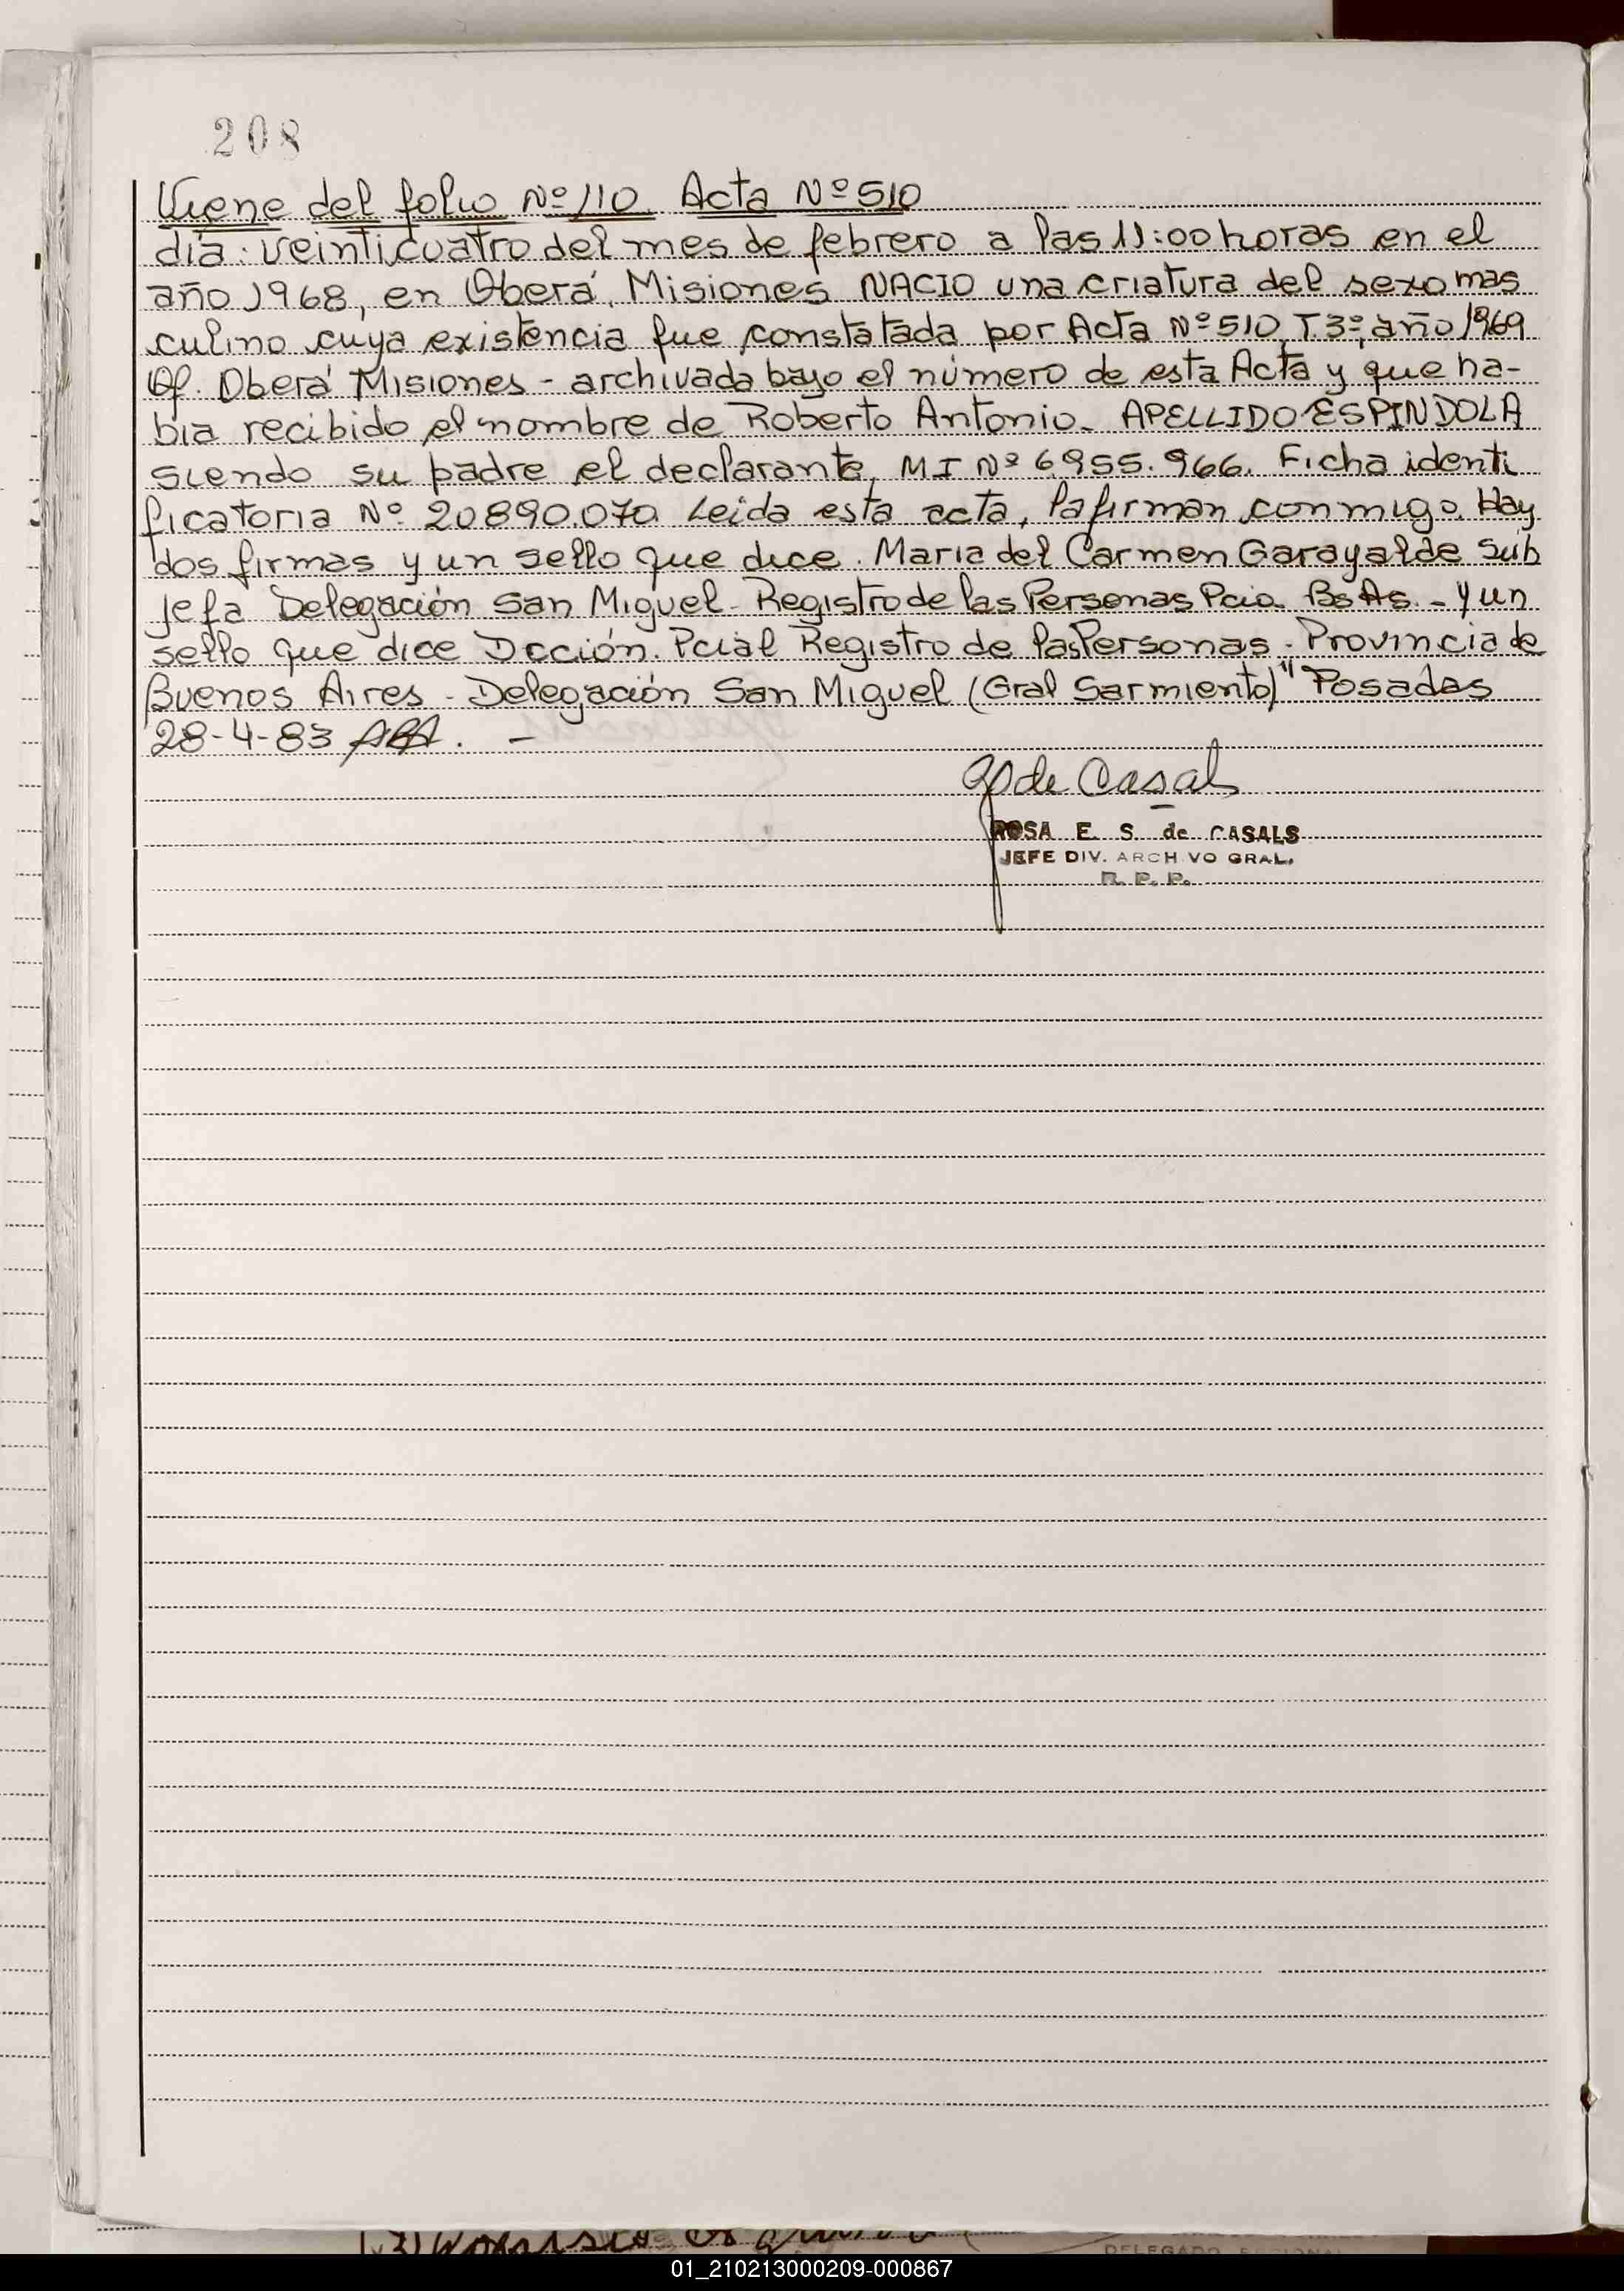 208
Viene del folio Nº 110. Acta Nº 510
día: veinticuatro del mes de febrero a las 11:00 horas en el
año 1968, en Oberá, Misiones NACIO una criatura del sexo mas
culino cuya existencia fue constatada por Acta Nº 510, T.3º, año 1969
Of. Oberá Misiones - archivada bajo el número de esta Acta y que ha-
bia recibido el nombre de Roberto Antonio. APELLIDO ESPINDOLA
siendo su padre el declarante, MI Nº 6.955.966. Ficha identi
ficatoria Nº 20.890.070. Leida esta acta, la firman conmigo. Hay
dos firmas y un sello que dice. Maria del Carmen Garayalde Sub
Jefa Delegación San Miguel - Registro de las Personas Pcia. Bs As. - Y un
sello que dice Dcción. Pcial Registro de las Personas - Provincia de
Buenos Aires - Delegación San Miguel (Gral Sarmiento)" Posadas
28-4-83
de Casals
ROSA E. S. de CASALS
JEFE DIV. ARCHIVO GRAL.
R. P. P.
01_210213000209-000867